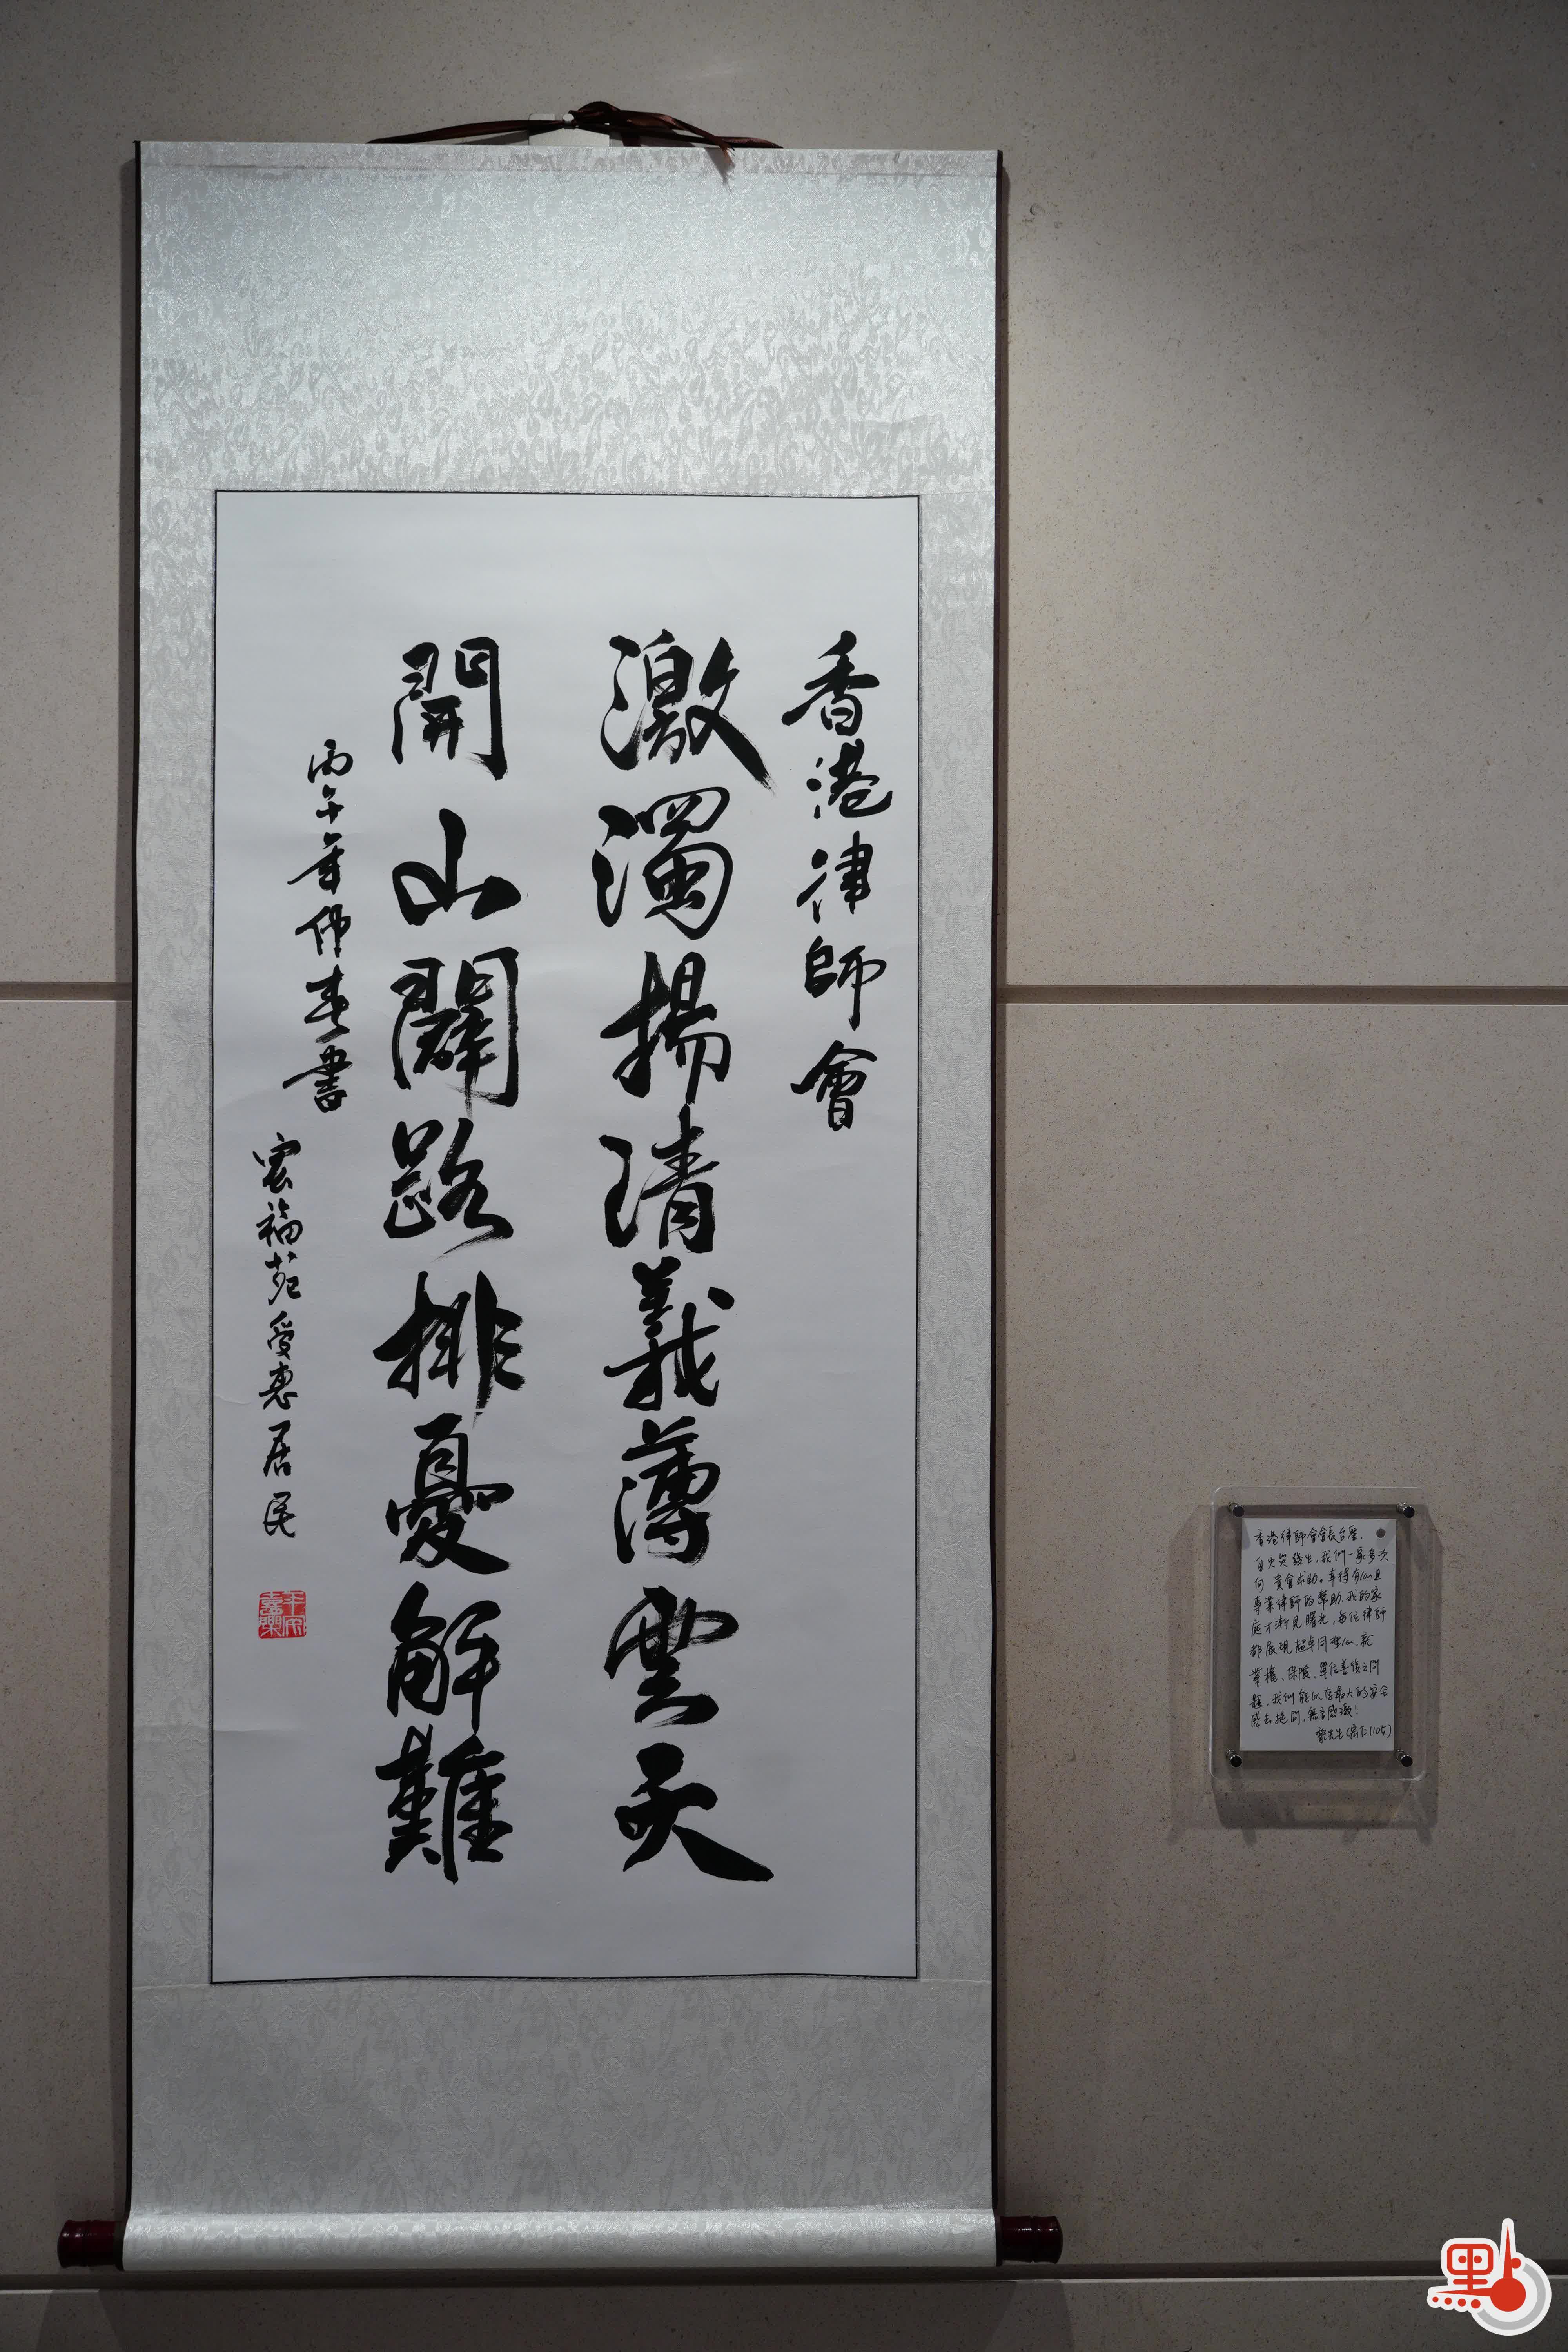 香港律師會
激濁揚清義薄雲天
開山闢路排憂解難
丙午年仲春書
宏福苑受惠居民
香港律師會會長台鑒,
自火災發生,我們一家多次
向 貴會求助。幸得有心且
專業律師的幫助,我的家
庭才漸見曙光,每位律師
都展現超卓同理心,就
業權、保險、單位善後之問
題,我們能以存最大的安全
感去提問,無言感激!
黎先生(宏仁1105)
點